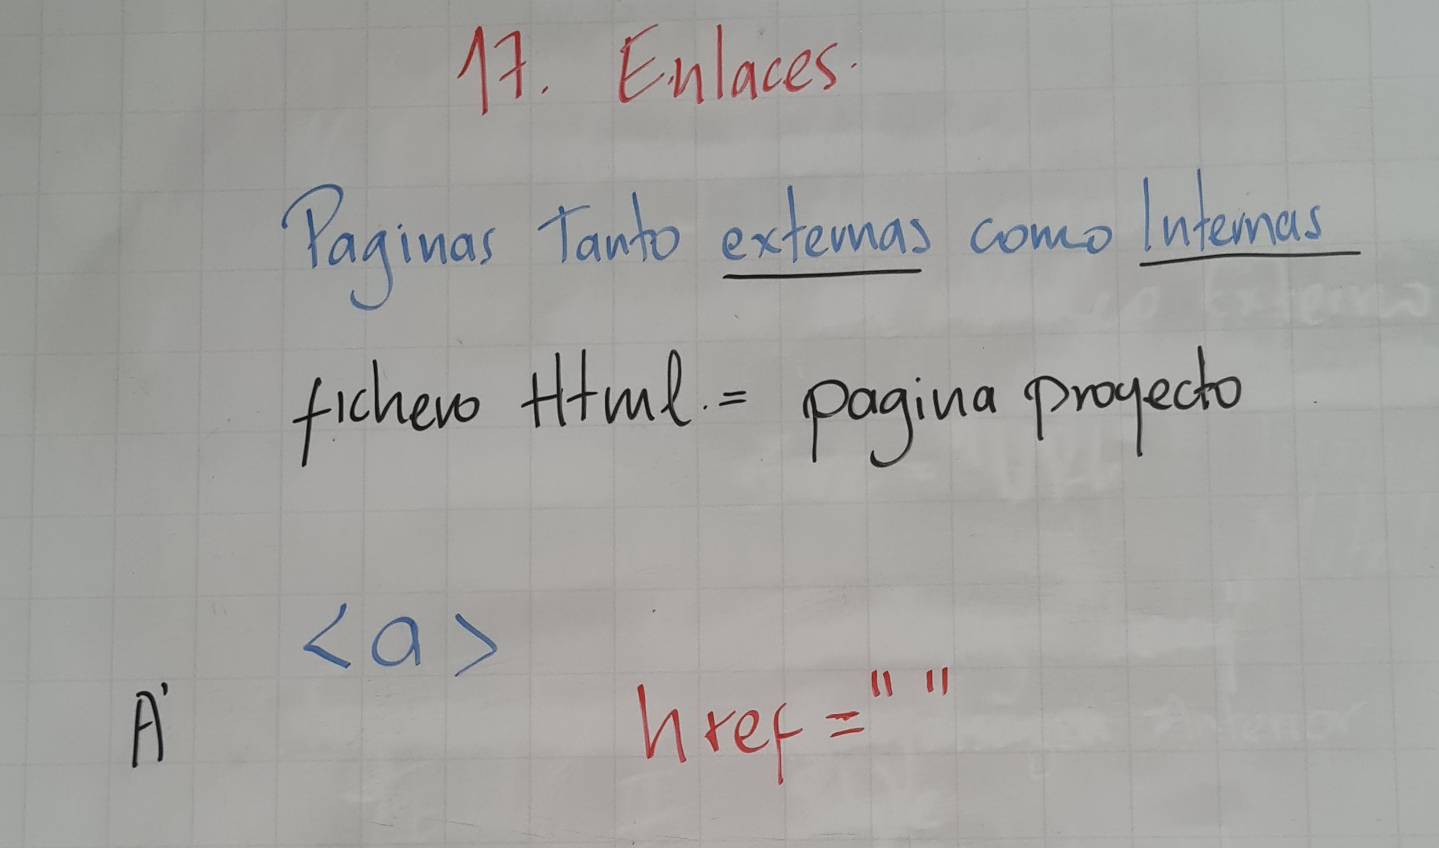 17. Enlaces.
Paginas Tanto externas como Internas
fichero Html. = pagina proyecto
<a>
A' href = " "